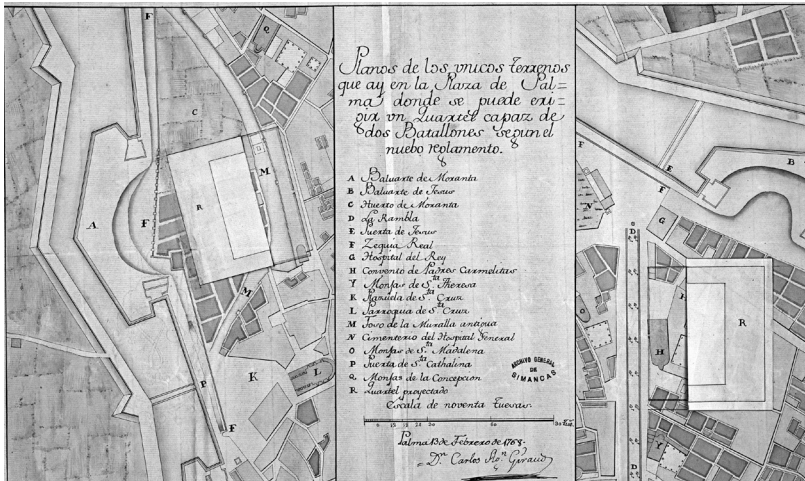 Planos de los vnicos terrenos
que ay en la Plaza de Pal=
ma donde se puede exi=
gir vn Quartèl capaz de
dos Batallones segun el
nuebo reglamento.
A Baluarte de Moranta
B Baluarte de Jesus
C Huerto de Moranta
D La Rambla
E Puerta de Jesus
F Zequia Real
G Hospital del Rey
H Convento de Padres Carmelitas
Y Monjas de S.ta Theresa
K Plazuela de S.ta Cruz
L Parroquia de S.ta Cruz
M Foso de la Muralla antigua
N Cimenterio del Hospital General
O Monjas de S.ta Madalena
P Puerta de S.ta Cathalina
Q Monjas de la Concepcion
R Quartel proyectado
Escala de noventa tuesas.
ARCHIVO GENERAL
DE
SIMANCAS
Palma 13 de Febrero de 1768.
D.n Carlos
F
Q
C
M
R
A
F
M
K
L
P
F
F
E
B
F
N
D
G
O
H
R
Y
D